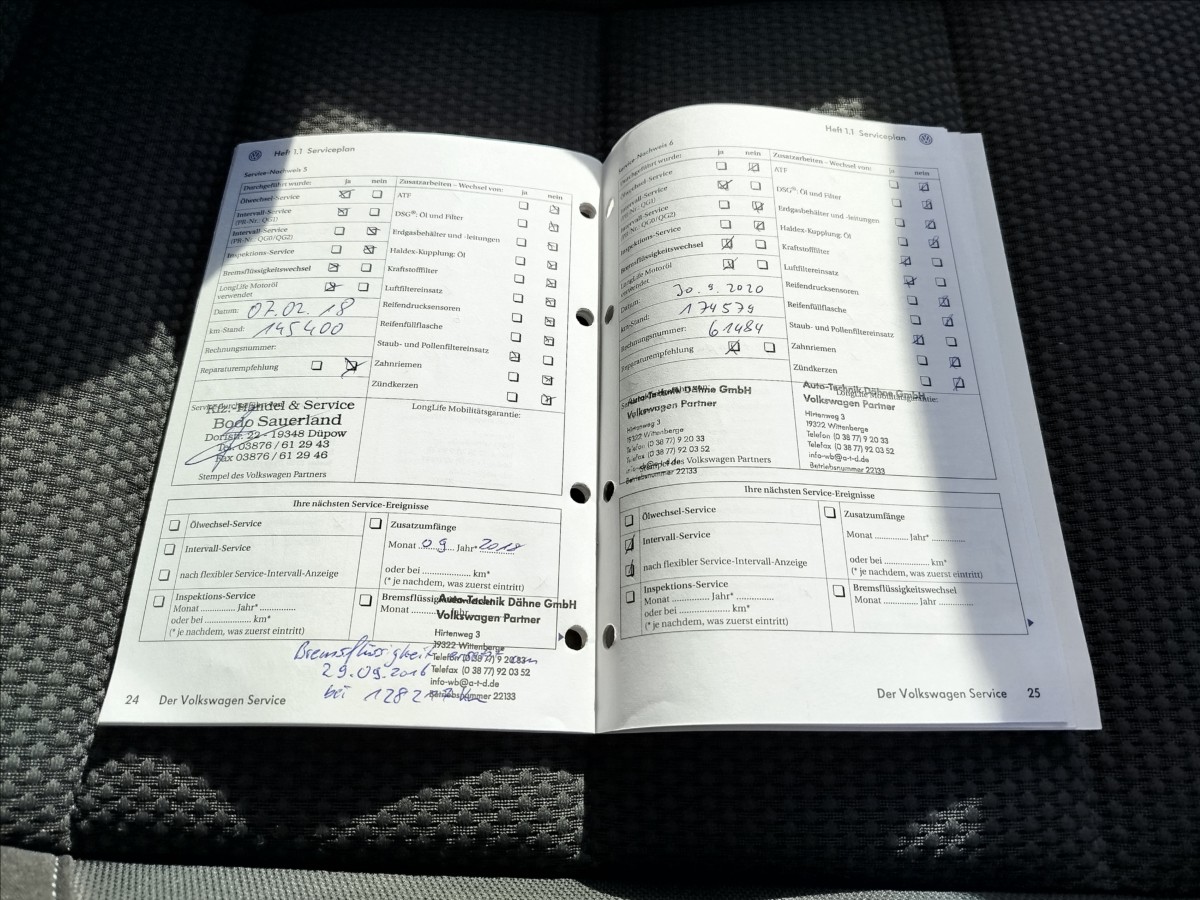 Heft 1.1 Serviceplan
Service-Nachweis 5
Durchgeführt wurde: ja nein
Ölwechsel-Service
Intervall-Service
(PR-Nr. QG1)
Intervall-Service
(PR-Nr. QG0/QG2)
Inspektions-Service
Bremsflüssigkeitswechsel
LongLife Motoröl
verwendet
Datum: 07.02.18
km-Stand: 145400
Rechnungsnummer:
Reparaturempfehlung
Zusatzarbeiten – Wechsel von: ja nein
ATF
DSG®: Öl und Filter
Erdgasbehälter und -leitungen
Haldex-Kupplung: Öl
Kraftstofffilter
Luftfiltereinsatz
Reifendrucksensoren
Reifenfüllflasche
Staub- und Pollenfiltereinsatz
Zahnriemen
Zündkerzen
Kfz.-Handel & Service
Bodo Sauerland
Dorfstr. 22 - 19348 Düpow
Tel. 03876 / 61 29 43
Fax 03876 / 61 29 46
Stempel des Volkswagen Partners
LongLife Mobilitätsgarantie:
Ihre nächsten Service-Ereignisse
Ölwechsel-Service
Intervall-Service
nach flexibler Service-Intervall-Anzeige
Inspektions-Service
Monat ........... Jahr* .............
oder bei .................. km*
(* je nachdem, was zuerst eintritt)
Zusatzumfänge
Monat 09 Jahr* 2018
oder bei .................. km*
(* je nachdem, was zuerst eintritt)
Monat
Auto-Technik Dähne GmbH
Volkswagen Partner
Hirtenweg 3
19322 Wittenberge
Telefon (0 38 77) 9 20 33
Telefax (0 38 77) 92 03 52
info-wb@a-t-d.de
Betriebsnummer 22133
29.09.2016
bei
24 Der Volkswagen Service
Heft 1.1 Serviceplan
Service-Nachweis 6
Durchgeführt wurde: ja nein
Ölwechsel-Service
Intervall-Service
(PR-Nr. QG1)
Intervall-Service
(PR-Nr. QG0/QG2)
Inspektions-Service
Bremsflüssigkeitswechsel
LongLife Motoröl
verwendet
Datum: 30.9.2020
km-Stand: 174579
Rechnungsnummer: 61484
Reparaturempfehlung
Zusatzarbeiten – Wechsel von: ja nein
ATF
DSG®: Öl und Filter
Erdgasbehälter und -leitungen
Haldex-Kupplung: Öl
Kraftstofffilter
Luftfiltereinsatz
Reifendrucksensoren
Reifenfüllflasche
Staub- und Pollenfiltereinsatz
Zahnriemen
Zündkerzen
Auto-Technik Dähne GmbH
Volkswagen Partner
Hirtenweg 3
19322 Wittenberge
Telefon (0 38 77) 9 20 33
Telefax (0 38 77) 92 03 52
Stempel des Volkswagen Partners
Betriebsnummer 22133
Auto-Technik Dähne GmbH
Volkswagen Partner
Hirtenweg 3
19322 Wittenberge
Telefon (0 38 77) 9 20 33
Telefax (0 38 77) 92 03 52
info-wb@a-t-d.de
Betriebsnummer 22133
Ihre nächsten Service-Ereignisse
Ölwechsel-Service
Intervall-Service
nach flexibler Service-Intervall-Anzeige
Inspektions-Service
Monat ........... Jahr* .............
oder bei .................. km*
(* je nachdem, was zuerst eintritt)
Zusatzumfänge
Monat ........... Jahr* .............
oder bei .................. km*
(* je nachdem, was zuerst eintritt)
Bremsflüssigkeitswechsel
Monat ........... Jahr .............
Der Volkswagen Service 25